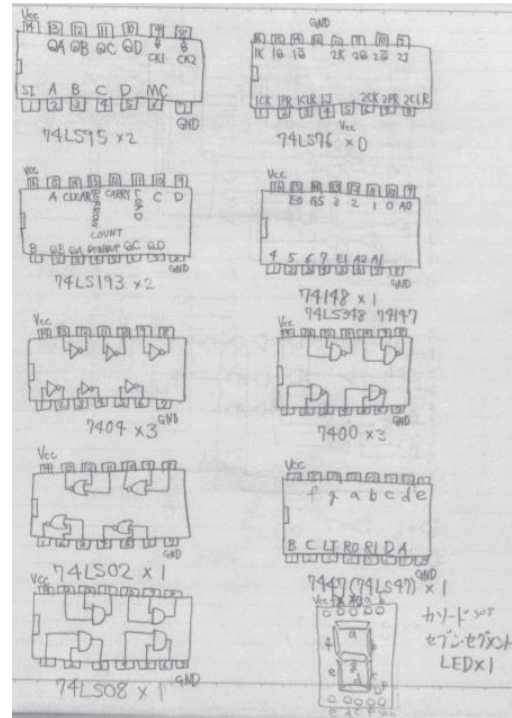 Vcc
14 13 12 11 10 9 8
QA QB QC QD CK1 CK2
SI A B C D MC
1 2 3 4 5 6 7
GND
74LS95 ×2
GND
1K 1Q 1Q̅ 2K 2Q 2Q̅ 2J
1CK 1PR 1CLR 1J 2CK 2PR 2CLR
Vcc
74LS76 ×0
Vcc
A CLEAR BORROW CARRY LOAD C D
COUNT
B QB QA DOWN UP QC QD
GND
74LS193 ×2
Vcc
E0 GS 3 2 1 0 A0
4 5 6 7 E1 A2 A1
GND
74148 ×1
74LS348 74147
Vcc
GND
7404 ×3
Vcc
GND
7400 ×3
Vcc
GND
74LS02 ×1
Vcc
f g a b c d e
B C LT RO RI D A
GND
7447(74LS47) ×1
Vcc
GND
74LS08 ×1
Vcc
a
f
g
e
d
カソード
セブン・セグメント
LED×1